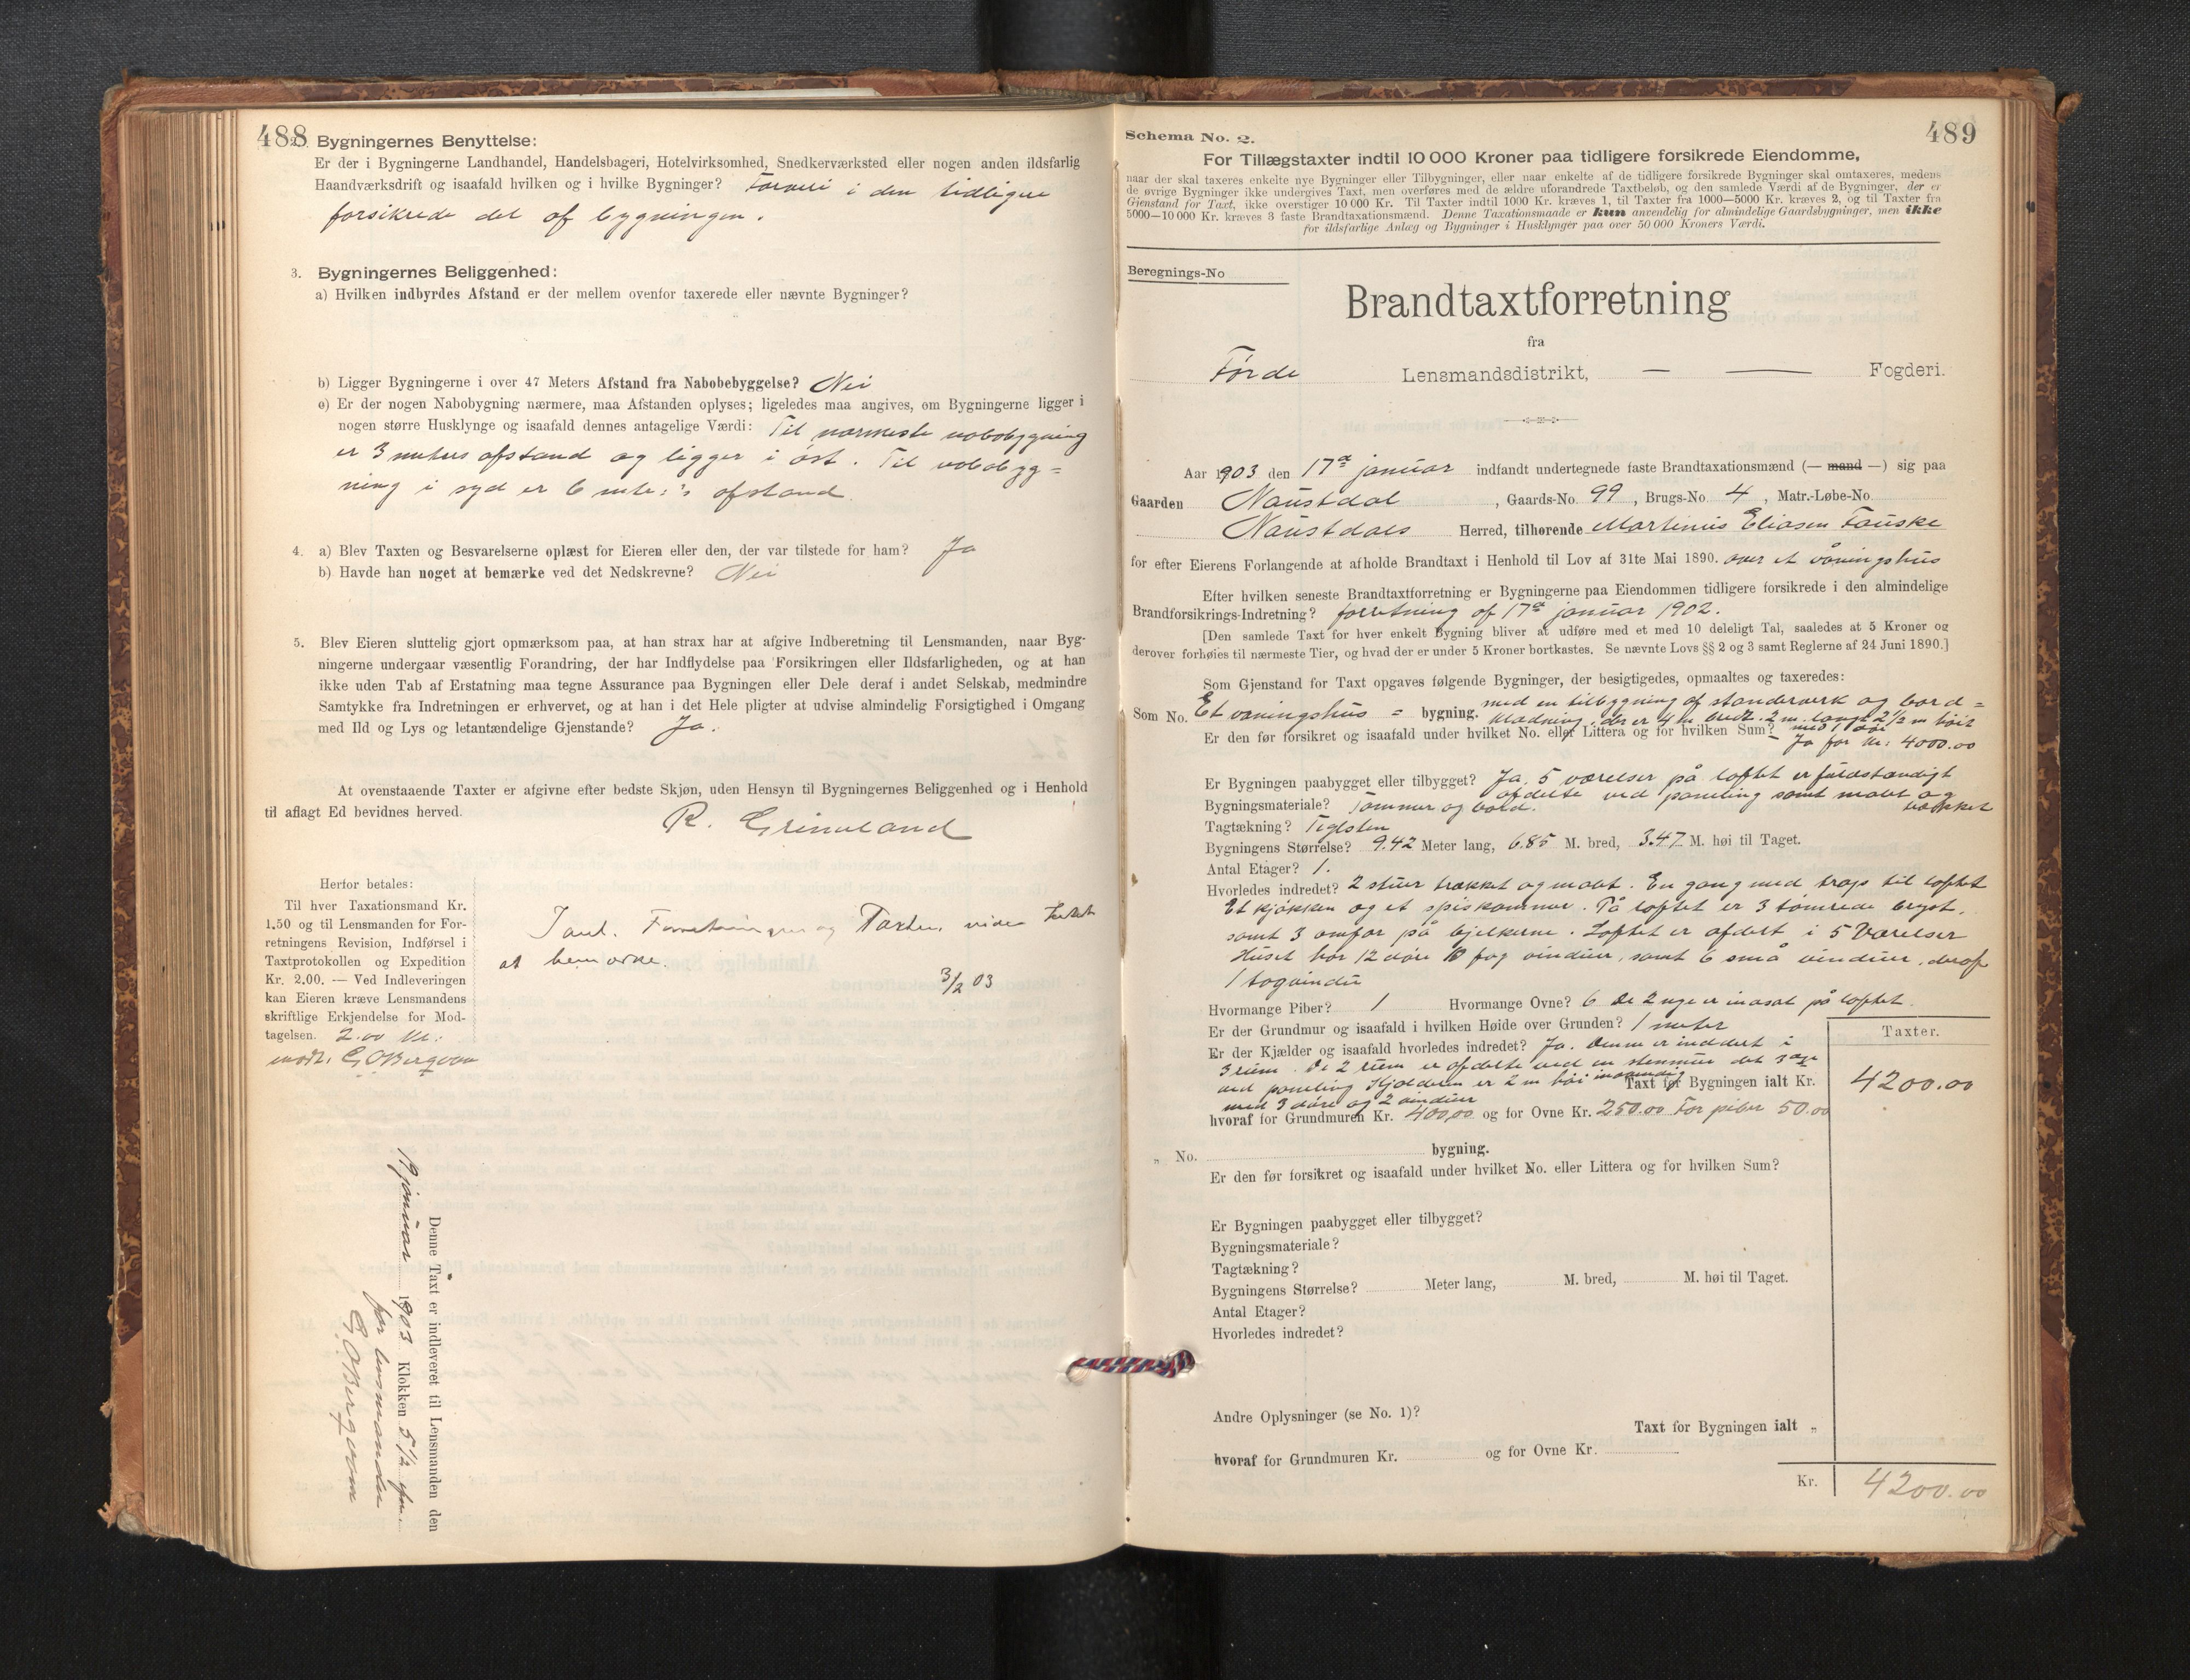 488
2. Bygningernes Benyttelse:
Er der i Bygningerne Landhandel, Handelsbageri, Hotelvirksomhed, Snedkerværksted eller nogen anden ildsfarlig
Haandværksdrift og isaafald hvilken og i hvilke Bygninger? Farveri i den tidligere
forsikrede del af bygningen.
3. Bygningernes Beliggenhed:
a) Hvilken indbyrdes Afstand er der mellem ovenfor taxerede eller nævnte Bygninger?
b) Ligger Bygningerne i over 47 Meters Afstand fra Nabobebyggelse? Nei
c) Er der nogen Nabobygning nærmere, maa Afstanden oplyses; ligeledes maa angives, om Bygningerne ligger i
nogen større Husklynge og isaafald dennes antagelige Værdi: Til nærmeste nabobygning
er 3 meters afstand og ligger i øst. Til nabobyg=
ning i syd er 6 mete:'s afstand.
4. a) Blev Taxten og Besvarelserne oplæst for Eieren eller den, der var tilstede for ham? Ja
b) Havde han noget at bemærke ved det Nedskrevne? Nei
5. Blev Eieren sluttelig gjort opmærksom paa, at han strax har at afgive Indberetning til Lensmanden, naar Byg-
ningerne undergaar væsentlig Forandring, der har Indflydelse paa Forsikringen eller Ildsfarligheden, og at han
ikke uden Tab af Erstatning maa tegne Assurance paa Bygningen eller Dele deraf i andet Selskab, medmindre
Samtykke fra Indretningen er erhvervet, og at han i det Hele pligter at udvise almindelig Forsigtighed i Omgang
med Ild og Lys og letantændelige Gjenstande? Ja.
At ovenstaaende Taxter er afgivne efter bedste Skjøn, uden Hensyn til Bygningernes Beliggenhed og i Henhold
til aflagt Ed bevidnes herved.
R. Grimeland
Herfor betales:
Til hver Taxationsmand Kr.
1.50 og til Lensmanden for For-
retningens Revision, Indførsel i
Taxtprotokollen og Expedition
Kr. 2.00. — Ved Indleveringen
kan Eieren kræve Lensmandens
skriftlige Erkjendelse for Mod-
tagelsen. 2.00 kr:
modt.
Forretningen og Taxten, intet
at bemærke.
3/2 03
Denne Taxt er indleveret til Lensmanden den
19 januar 1903 Klokken 5 1/2 efm.
for lensmanden
Schema No. 2.
489
For Tillægstaxter indtil 10 000 Kroner paa tidligere forsikrede Eiendomme,
naar der skal taxeres enkelte nye Bygninger eller Tilbygninger, eller naar enkelte af de tidligere forsikrede Bygninger skal omtaxeres, medens
de øvrige Bygninger ikke undergives Taxt, men overføres med de ældre uforandrede Taxtbeløb, og den samlede Værdi af de Bygninger, der er
Gjenstand for Taxt, ikke overstiger 10 000 Kr. Til Taxter indtil 1000 Kr. kræves 1, til Taxter fra 1000—5000 Kr. kræves 2, og til Taxter fra
5000—10 000 Kr. kræves 3 faste Brandtaxationsmænd. Denne Taxationsmaade er kun anvendelig for almindelige Gaardsbygninger, men ikke
for ildsfarlige Anlæg og Bygninger i Husklynger paa over 50 000 Kroners Værdi.
Beregnings-No
Brandtaxtforretning
fra
Førde Lensmandsdistrikt, — — Fogderi.
Aar 1903 den 17de januar indfandt undertegnede faste Brandtaxationsmænd (— mand —) sig paa
Gaarden Naustdal, Gaards-No. 99, Brugs-No. 4, Matr.-Løbe-No.
Naustdals Herred, tilhørende Martinus Eliasen Fauske
for efter Eierens Forlangende at afholde Brandtaxt i Henhold til Lov af 31te Mai 1890. over et våningshus
Efter hvilken seneste Brandtaxtforretning er Bygningerne paa Eiendommen tidligere forsikrede i den almindelige
Brandforsikrings-Indretning? forretning af 17de januar 1902.
[Den samlede Taxt for hver enkelt Bygning bliver at udføre med et med 10 deleligt Tal, saaledes at 5 Kroner og
derover forhøies til nærmeste Tier, og hvad der er under 5 Kroner bortkastes. Se nævnte Lovs §§ 2 og 3 samt Reglerne af 24 Juni 1890.]
Som Gjenstand for Taxt opgaves følgende Bygninger, der besigtigedes, opmaaltes og taxeredes:
Som No. Et våningshus = bygning. med en tilbygning af standerverk og bord=
klædning, der er 4 m bredt. 2 m. langt 2 1/2 m høit
med 1 dør
Er den før forsikret og isaafald under hvilket No. eller Littera og for hvilken Sum?
Ja for kr: 4000.00
Er Bygningen paabygget eller tilbygget? Ja, 5 værelser på loftet er fuldstændigt
afdelte ved paneling samt malet og
trækket
Bygningsmateriale? Tømmer og bord.
Tagtækning? Teglsten
Bygningens Størrelse? 9.42 Meter lang, 6.85 M. bred, 3.47 M. høi til Taget.
Antal Etager? 1.
Hvorledes indredet? 2 stuer trækket og malet. En gang med trap til loftet
Et kjøkken og et spiskammer. På loftet er 3 tømrede bryst,
samt 3 omfar på bjelkerne. Loftet er afdelt i 5 Værelser
Huset har 12 døre 10 fag vinduer, samt 6 små vinduer, deraf
1 tagvindu
Hvormange Piber? 1 Hvormange Ovne? 6 De 2 nye er indsat på loftet.
Er der Grundmur og isaafald i hvilken Høide over Grunden? 1 meter
Er der Kjælder og isaafald hvorledes indredet? Ja. Denne er inddelt i
3 rum. De 2 rum er afdelte ved en stenmur det 3die
ved paneling Kjælderen er 2 m høi indvendig
med 3 døre og 2 vinduer
Taxter.
Taxt for Bygningen ialt Kr. 4200.00
hvoraf for Grundmuren Kr. 400,00 og for Ovne Kr. 250.00 For piber 50.00
„ No. bygning.
Er den før forsikret og isaafald under hvilket No. eller Littera og for hvilken Sum?
Er Bygningen paabygget eller tilbygget?
Bygningsmateriale?
Tagtækning?
Bygningens Størrelse? Meter lang, M. bred, M. høi til Taget.
Antal Etager?
Hvorledes indredet?
Andre Oplysninger (se No. 1)?
Taxt for Bygningen ialt „
hvoraf for Grundmuren Kr. og for Ovne Kr.
Kr. 4200.00